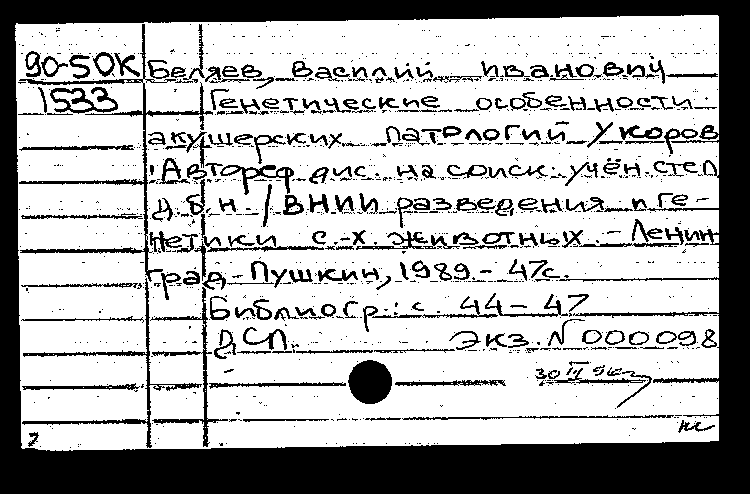 90-50К Беляев, Василий Иванович
1533 Генетические особенности
акушерских патологий у коров
: Автореф дис. на соиск. учён. степ
д.б.н. / ВНИИ разведения и ге-
нетики с.-х. животных. - Ленин-
град - Пушкин, 1989. - 47с.
Библиогр.: с. 44-47
ДСП. Экз. N 000098
30 III